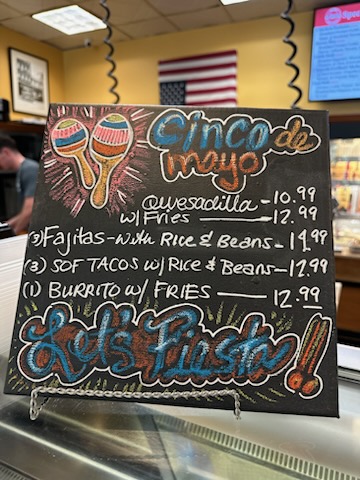 Cinco de
mayo
Quesadilla - 10.99
w/ Fries — 12.99
(3) Fajitas - With Rice & Beans - 14.99
(3) SOF TACOS w/ Rice & Beans - 12.99
(1) BURRITO w/ FRIES — 12.99
Let's Fiesta!!